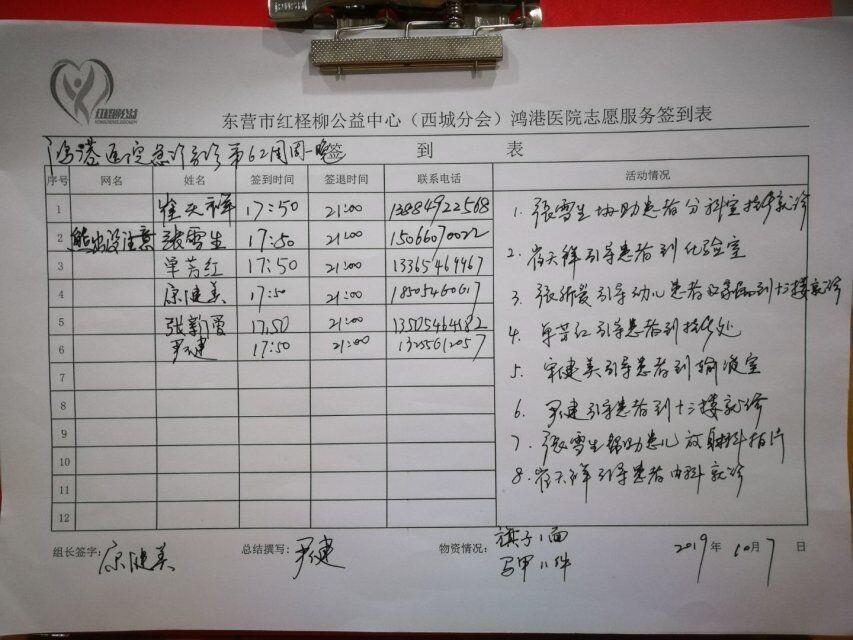 红柽柳公益
东营市红柽柳公益中心（西城分会）鸿港医院志愿服务签到表
鸿港医院急诊导诊第62周周一晚 签 到 表
序号 网名 姓名 签到时间 签退时间 联系电话 活动情况
1 崔天祥 17:50 21:00 13884922568
2 熊出没注意 张雪生 17:50 21:00 15066070022
3 单芳红 17:50 21:00 13365469967
4 宗健美 17:50 21:00 18505460617
5 张新爱 17:50 21:00 13505464182
6 尹建 17:50 21:00 13255612057
7
8
9
10
11
12
1. 张雪生协助患者分科室指导就诊
2. 崔天祥引导患者到化验室
3. 张新爱引导幼儿患者到十二楼就诊
4. 单芳红引导患者到
5. 宗健美引导患者到输液室
6. 尹建引导患者到十二楼就诊
7. 张雪生帮助患儿放射科拍片
8. 崔天祥引导患者内科就诊
组长签字： 宗健美 总结撰写： 尹建 物资情况： 旗子1面
马甲11件
2019年 10月7日